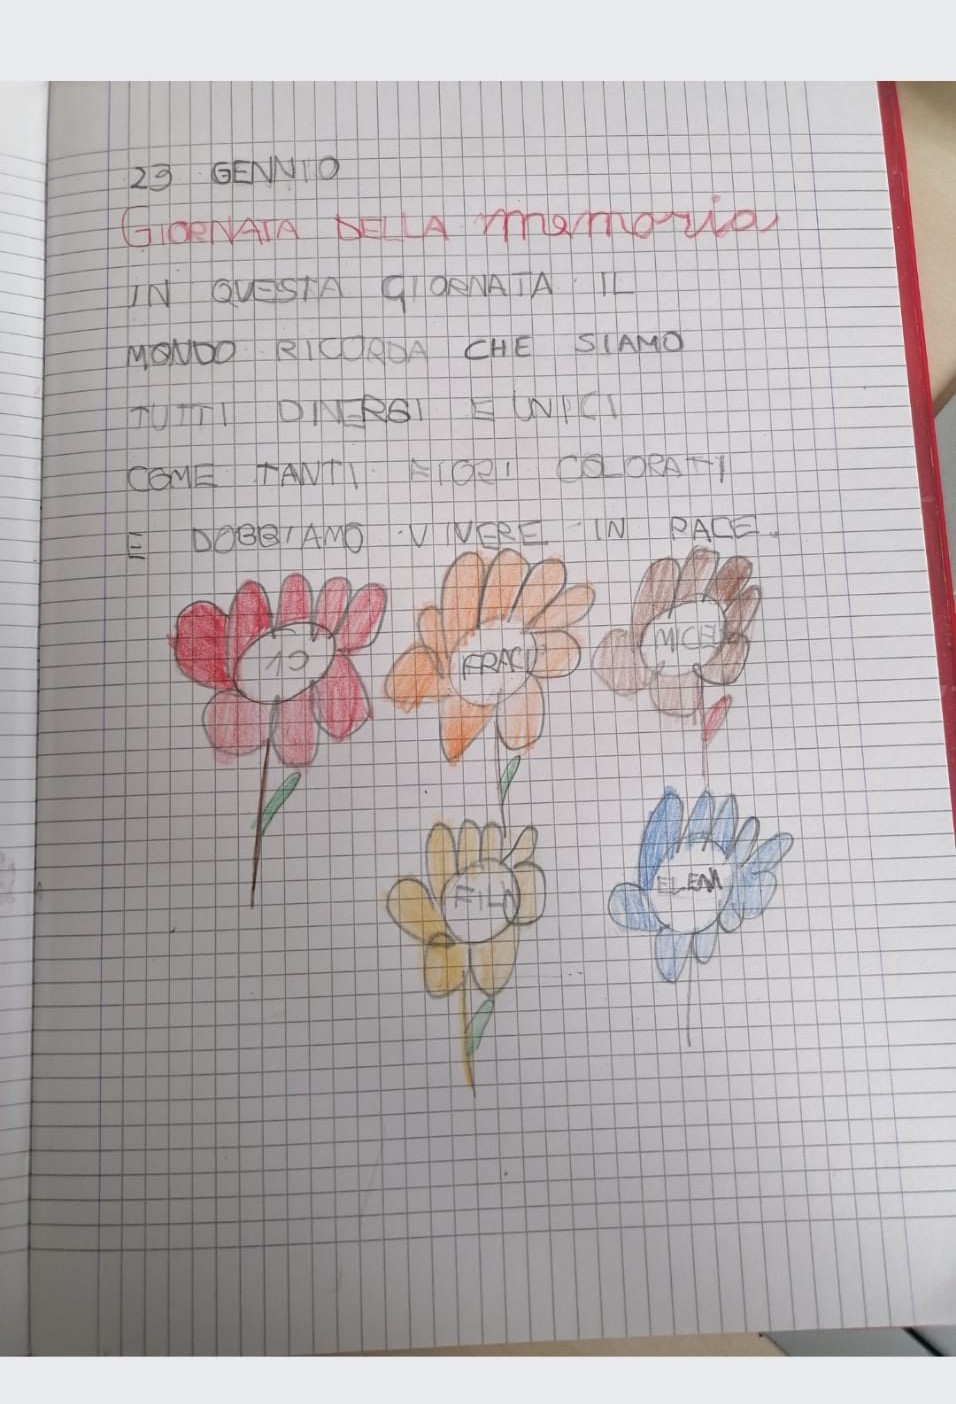 29 GENNIO
GIORNATA DELLA memoria
IN QUESTA GIORNATA IL
MONDO RICORDA CHE SIAMO
TUTTI DIVERSI E UNICI
COME TANTI FIORI COLORATI
E DOBBIAMO VIVERE IN PACE.
FRACI
MICEL
ELEM